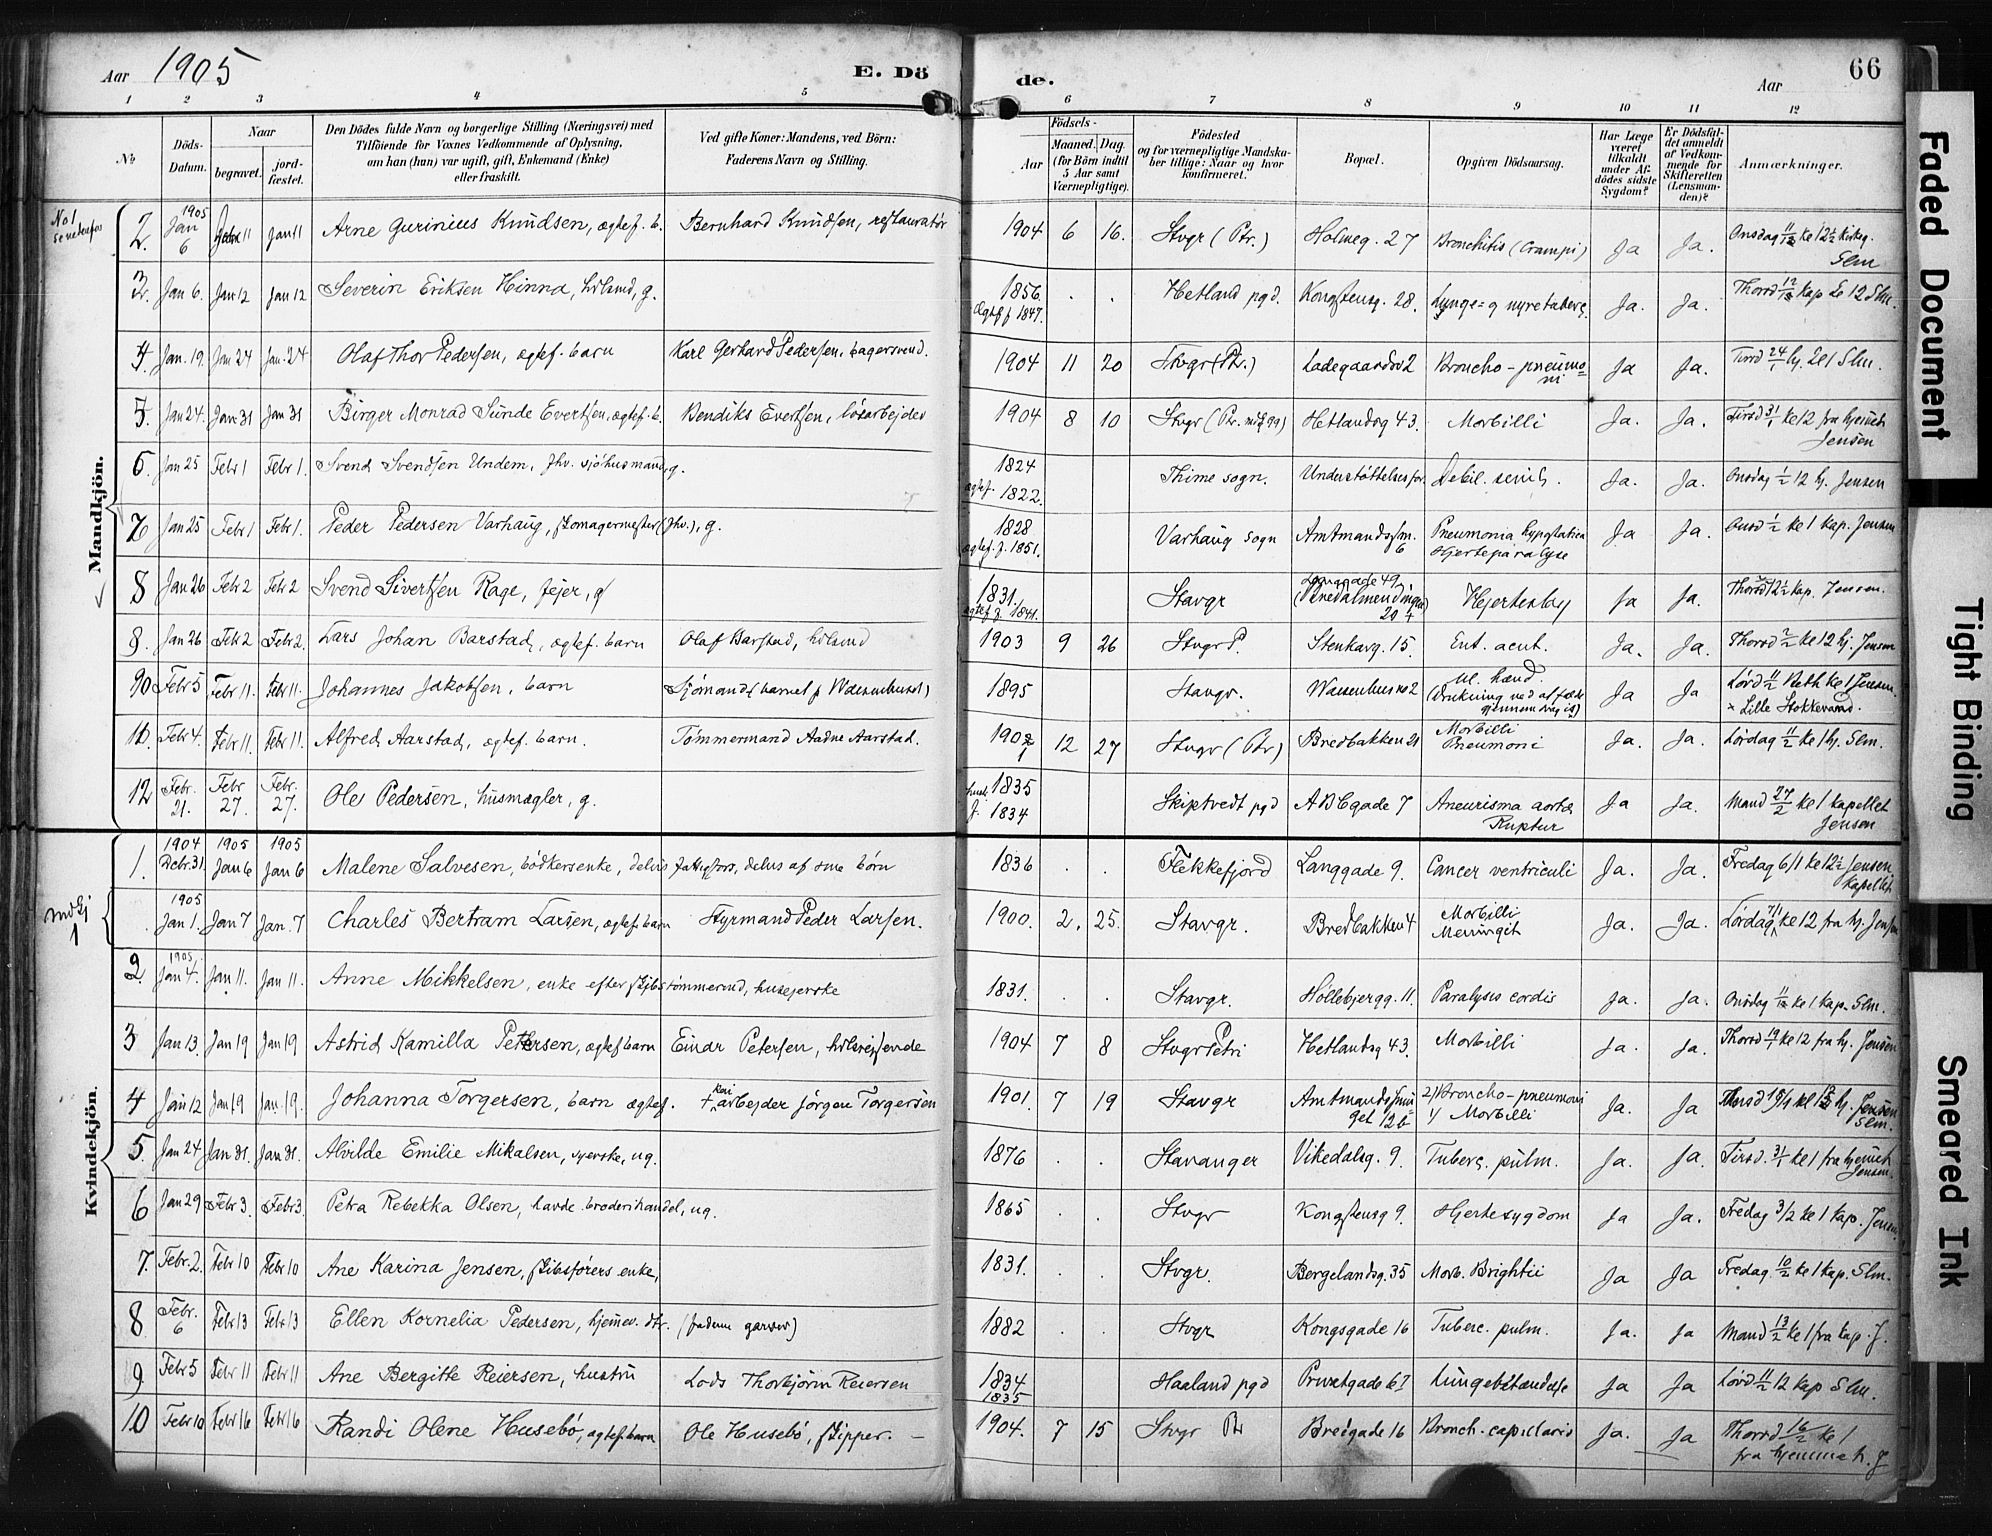 Aar 1905 E. Dö de. Aar 66
1 2 3 4 5 6 7 8 9 10 11 12
No
Döds-Datum.
Naar begravet. jord-fæstet.
Den Dödes fulde Navn og borgerlige Stilling (Næringsvei) med Tilföiende for Voxnes Vedkommende af Oplysning, om han (hun) var ugift, gift, Enkemand (Enke) eller fraskilt.
Ved gifte Koner: Mandens, ved Börn: Faderens Navn og Stilling.
Födsels- Aar Maaned. Dag. (for Börn indtil 5 Aar samt Værnepligtige).
Födested og for værnepligtige Mandskaber tillige: Naar og hvor konfirmeret.
Bopæl.
Opgiven Dödsaarsag.
Har Læge været tilkaldt under Afdödes sidste Sygdom?
Er Dödsfaldet anmeldt af Vedkommende for Skifteretten (Lensmanden)?
Anmærkninger.
Mandkjön.
No 1 se nedenfor
2. 1905 Jan 6 Jan 11 Jan 11 Arne Gurinius Knudsen, ægtef. b. Bernhard Knudsen, restauratør 1904 6 16. Stvgr (Ptr.) Holmeg. 27 Bronchitis (Crampi) Ja Ja. Onsdag 11/1 kl 12½ kirkeg. Slm
3. Jan 6. Jan 12 Jan 12 Severin Eriksen Hinna, hdlsmd, g. 1856. Ægtef f 1847. . . Hetland pgd. Kongstensg. 28. Lunge= g nyretuberc. Ja. Ja. Thorsd 12/1 kap 12 Slm.
4. Jan. 19. Jan 24 Jan. 24 Olaf Thor Pedersen, ægtef. barn Karl Gerhard Pedersen, bagersvend. 1904 11 20 Stvgr (Ptr.) Ladegaardsv 2 Broncho-pneumoni Ja Ja. Tirsd 24/1 hj. Slm.
5. Jan 24. Jan 31 Jan 31 Birger Monrad Sunde Evertsen, ægtef. b. Bendiks Evertsen, løsarbejder 1904 8 10 Stvgr (Ptr. Hetlandsg 43. Morbilli Ja. Ja. Tirsd 31/1 kl 12 fra hjemmet Jensen
6. Jan 25 Febr 1 Febr 1. Svend Svendsen Undem, fhv. sjøhusmand, g. 1824 ægtef. 1822. Thime sogn. Understøttelsesfor. Debil. senil. Ja. Ja. Onsdag 1/2 12 hj. Jensen
7. Jan 25 Febr 1 Febr 1. Peder Pedersen Varhaug, skomagermester (fhv.), g. 1828 ægtef. f. 1851. Varhaug sogn Amtmandssm. 6 Pneumonia hypostatica Hjerteparalyse Ja Ja. Onsd 1/2 kl 1 kap. Jensen
8 Jan 26 Febr 2 Febr 2 Svend Sivertsen Rage, fejer, g 1831. ægtef f. 1841. Stavgr Langgade 49 Hjerteslag Ja Ja. Thorsd 12½ kap. Jensen.
Jan 26 Febr 2 Febr 2. Lars Johan Barstad, ægtef. barn Olaf Barstad, hdlsmd 1903 9 26 Stvgr P. Stenkarg. 15. Ent. acut. Ja. Ja. Thorsd 2/2 kl 12 hj. Jensen
10 Febr 5 Febr 11. Febr 11. Johannes Jakobsen, barn Sjømand (barnet p Waisenhuset) 1895 Stavgr. Waisenhus no 2 Ul. hænd. (Drukning ved at falde gjennem svag is) Ja Ja Lørd 11/2 Beth kl 1 Jensen. × Lille Stokkevand.
11. Febr 4. Febr 11. Febr 11. Alfred Aarstad, ægtef. barn. Tømmermand Aadne Aarstad. 1902 12 27 Stvgr (Ptr) Bredbakken 21 Morbilli Pneumoni Ja. Ja. Lørdag 11/2 kl 1 hj. Slm.
12 Febr. 21. Febr 27. Febr. 27. Ole Pedersen, husmægler, g. 1835 hust. f. 1834 Skiptvedt pgd ABCgade 7 Aneurisma aortæ Ruptur Ja Ja. Mand 27/2 kl 1 kapellet Jensen
Kvindekjön.
1. 1904 Decbr. 31. 1905 Jan 6 1905 Jan 6 Malene Salvesen, bødkersenke, delvis fattigfors, delvis af sine børn 1836 . . Flekkefjord Langgade 9. Cancer ventriculi Ja. Ja. Fredag 6/1 kl 12½ Jensen Kapellet
Mdkj 1 1905 Jan 1. Jan 7 Jan. 7 Charles Bertram Larsen, ægtef. barn Styrmand Peder Larsen. 1900. 2. 25. Stavgr. Bredbakken 4 Morbilli Meningit Ja. Ja. Lørdag 7/1 kl 12 fra hj. Jensen
2. 1905 Jan 4. Jan 11. Jan 11. Anne Mikkelsen, enke efter skibstømmermd, husejerske 1831. . . Stavgr. Hollebjergg. 11. Paralysis cordis Ja. Ja. Onsdag 11/1 kl 1 kap. Slm.
3 Jan 13. Jan 19 Jan 19 Astrid Kamilla Petersen, ægtef barn Einar Petersen, hdlsrejsende 1904 7 8 Stvgr Petri Hetlandsg 43. Morbilli Ja. Ja. Thorsd 19/1 kl 12 fra hj. Jensen
4 Jan 12 Jan 19 Jan. 19. Johanna Torgersen, barn ægtef. + Kaiarbejder Jörgen Torgersen 1901. 7 19 Stavgr Amtmandssmuget 12 b 2) Broncho-pneumoni 1) Morbilli Ja. Ja Thorsd 19/1 kl hj. Jensen Slm.
5. Jan 24 Jan 31. Jan 31. Alvilde Emilie Mikalsen, syerske, ug. 1876 . . Stavanger Vikedalsg. 9. Tuberc. pulm. Ja. Ja. Tirsd. 31/1 kl 1 fra hjemmet Jensen.
6 Jan 29 Febr 3. Febr 3. Petra Rebekka Olsen, havde broderihandel, ug. 1865 . . Stvgr Kongstensg 9. Hjertesygdom Ja Ja. Fredag 3/2 kl 1 kap. Jensen
7. Febr. 2. Febr 10 Febr 10 Ane Karina Jensen, skibsførers enke, 1831. . . Stvgr. Bergelandsg. 35 Morb. Brightii Ja Ja Fredag. 10/2 kl 1 kap. Slm.
8 Febr. 6 Febr 13 Febr 13 Ellen Kornelia Pedersen, hjemmev. dtr. (faderen garver) 1882 . . Stvgr Kongsgade 16 Tuberc. pulm. Ja. Ja Mand 13/2 kl 1 fra kap. J.
9 Febr 5 Febr 11 Febr 11 Ane Bergitte Reiersen, hustru Lods Thorbjørn Reiersen 1834 1835 Haaland pgd Privatgade 61 Lungebetændelse Ja Ja Lørd 11/2 12 kap Slm.
10 Febr 10 Febr 16 Febr 16 Randi Olene Husebö, ægtef. barn Ole Husebö, skipper. 1904. 7 15 Stvgr Ptr Bredgade 16 Bronch. capillaris Ja. Ja Thorsd 16/2 kl 1 fra hjemmet. J
Faded Document
Tight Binding
Smeared Ink